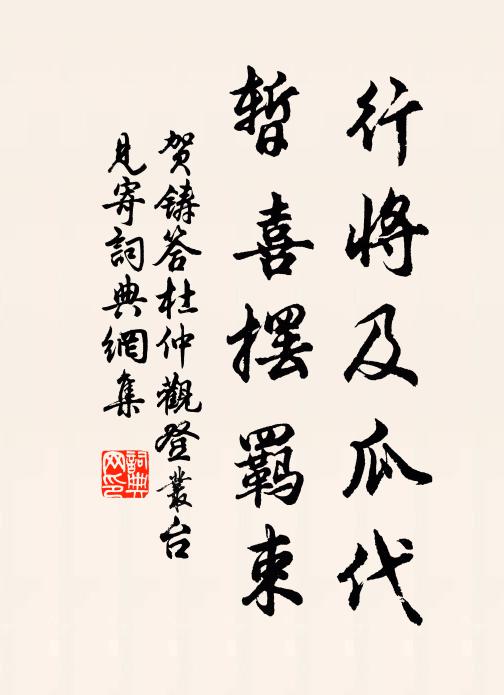 行將及瓜代
暫喜擺羈束
賀鑄答杜仲觀登叢台
見寄詞典網集
詞典網印